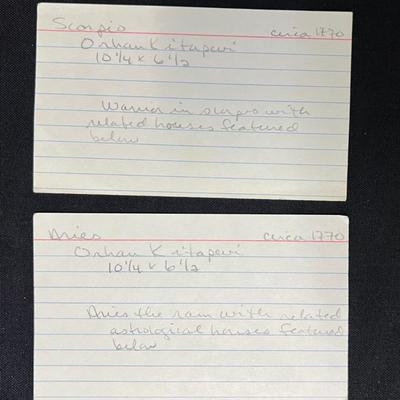 Scorpio circa 1770
Orhan Kitapevi
10 1/4 x 6 1/2
Warrior in scorpio with
related houses featured
below
Aries circa 1770
Orhan Kitapevi
10 1/4 x 6 1/2
Aries the ram with related
astrological houses featured
below